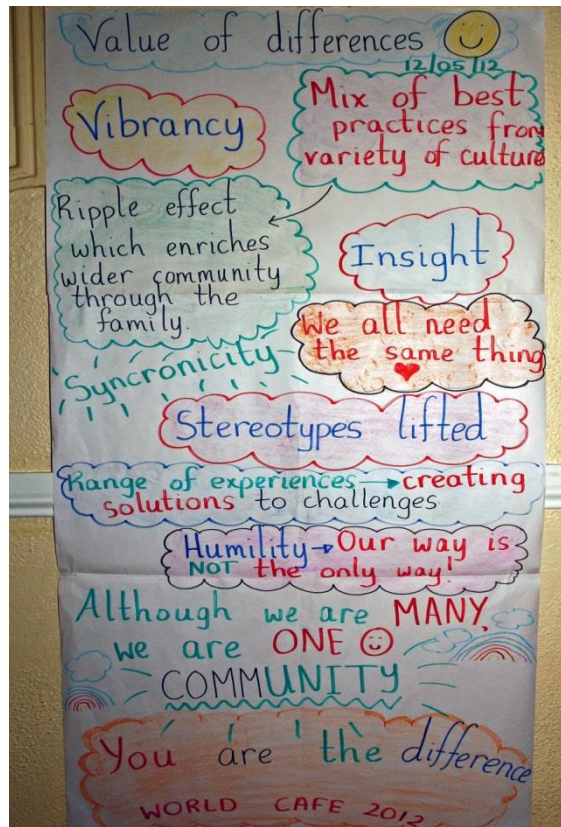 Value of differences
12/05/12
Vibrancy
Mix of best
practices from
variety of culture
Ripple effect
which enriches
wider community
through the
family.
Insight
We all need
the same thing
Syncronicity
Stereotypes lifted
Range of experiences → creating
solutions to challenges
Humility → Our way is
NOT the only way!
Although we are MANY,
we are ONE
COMMUNITY
You are the difference
WORLD CAFE 2012